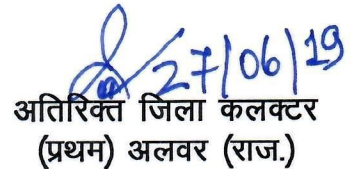 27/06/19
अतिरिक्त जिला कलक्टर
(प्रथम) अलवर (राज.)